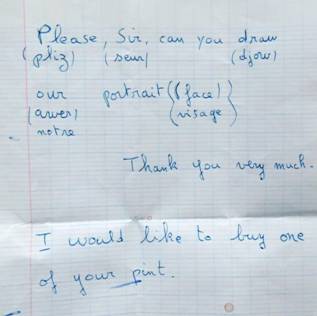 Please, Sir, can you draw
(pliz) (seur) (djow)
our portrait ((face)
(awer) (visage)
notre
Thank you very much.
I would like to buy one
of your pint.